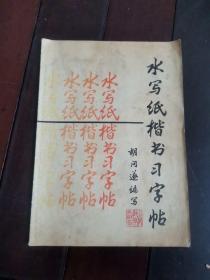 水写纸楷书习字帖
胡问遂编写
水写纸楷书习字帖
水写纸楷书习字帖
水写纸楷书习字帖
水写纸楷书习字帖